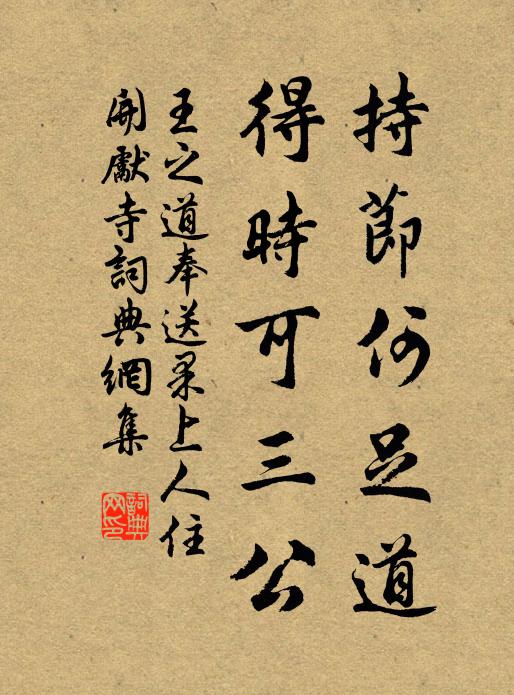 持節何足道
得時可三公
王之道奉送果上人住
開獻寺詞典網集
詞典網印